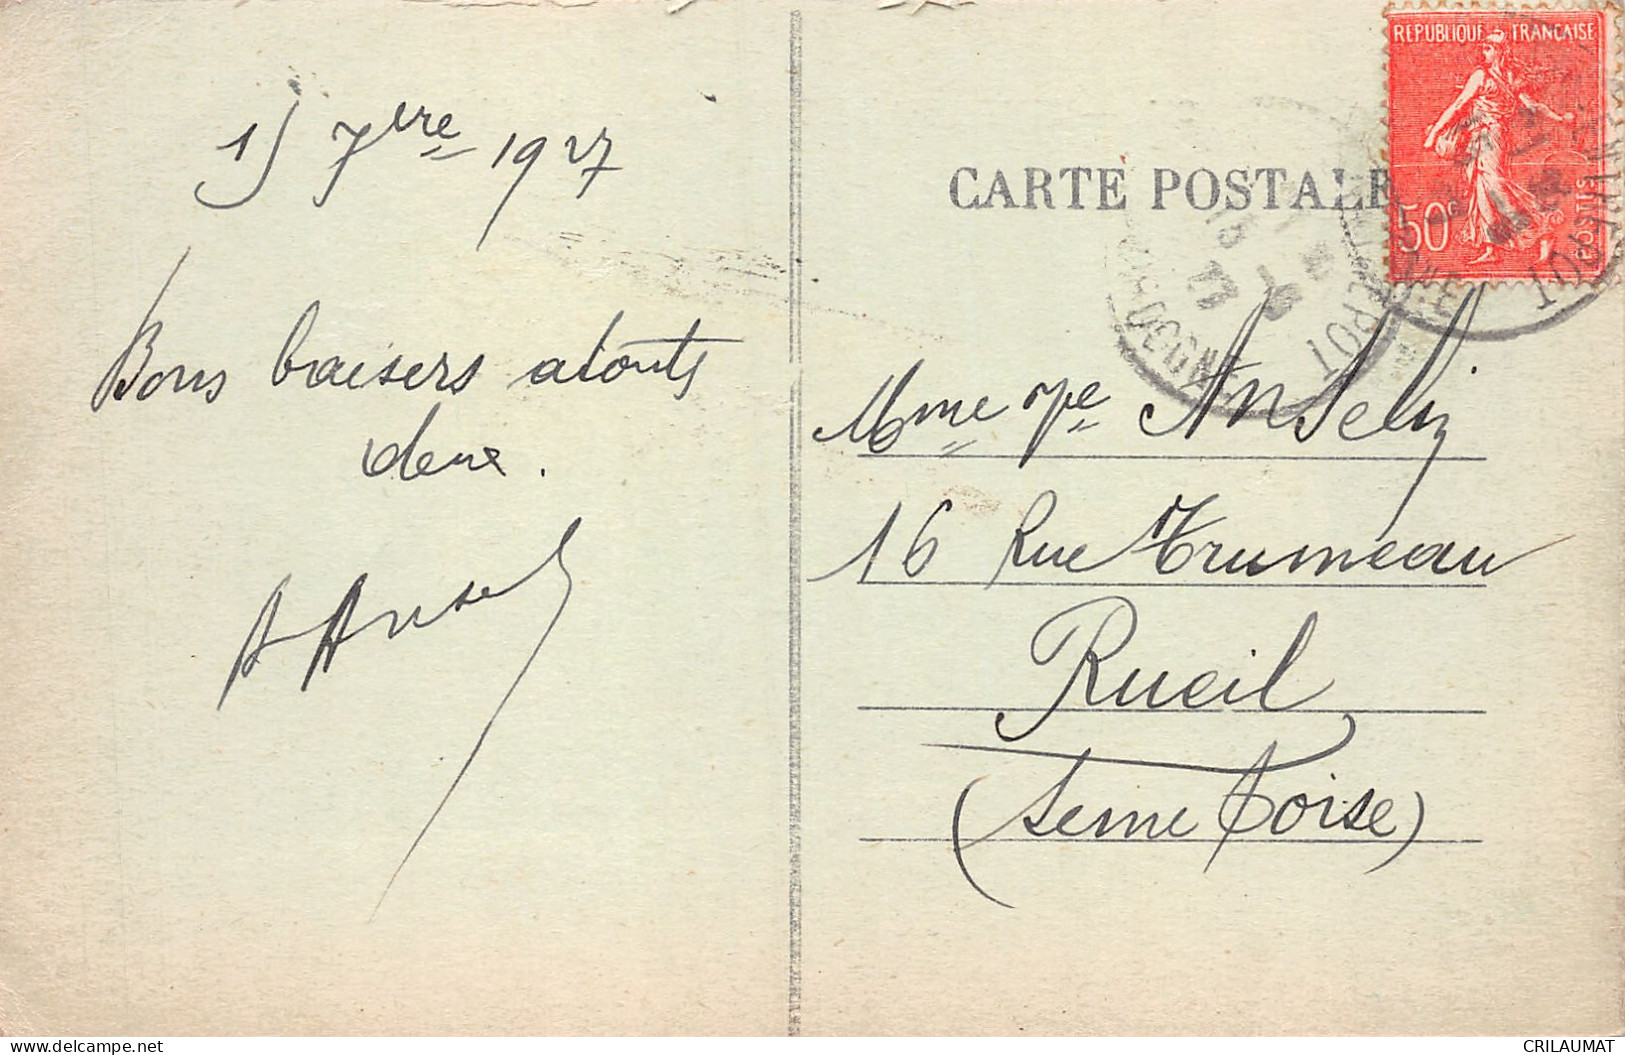 15 7bre 1927
Bons baisers atouts
deux.
A Ansel
CARTE POSTALE
REPUBLIQUE FRANÇAISE
50c
POSTES
Mme
16 Rue Trumeau
Rueil
(Seine &oise)
CRILAUMAT